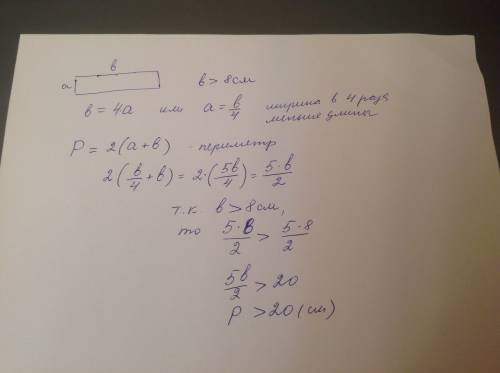 в
a
в > 8 см
в = 4a или a = в/4 ширина в 4 раза
меньше длины
P = 2(a+в) - периметр
2(в/4 + в) = 2·(5в/4) = 5·в/2
т.к. в > 8 см,
то 5·в/2 > 5·8/2
5в/2 > 20
P > 20 (см)